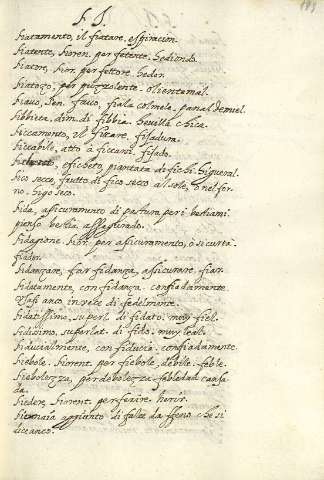 F. I.
fiatamento, il fiatare, espiracion.
fiatente, fioren. per fetente. hediondo.
fiatore, fior. per fettore. hedor.
fiatoso, per puzzolente. olientemal.
fiauo, Sen. fauo, fiala colmela, panal de miel.
fibbieta, dim. di fibbia. heuilla chica.
ficcamento, il ficcare, fijadura.
ficcabile, atto à ficcarsi, fijado.
o ficheto, piantata di fichi. higueral.
fico secco, frutto di fico secco al sole, ò nel for-
no. higo seco.
fida, assicuramento di pastura per i bestiami.
pienso bestia assegurado.
fidagione. fior. per assicuramento, ò sicurta.
fiador.
fidanzare, far fidanza, assicurare. fiar.
fidatamente, con fidanza. confiadamente.
Usasi anco in uece di fedelmente.
fidatissimo, superl. di fidato. muy fiel.
fidissimo, superlat. di fido. muy leal.
fiducialmente, con fiducia. confiadamente.
fiebole. fiorent. per fiebole, debile. feble.
fiebolezza, per debolezza. fabledad cansa
da.
fiedere, fiorent. per ferire. herir.
fienaia aggiunto di falce da fieno che si
dice anco.